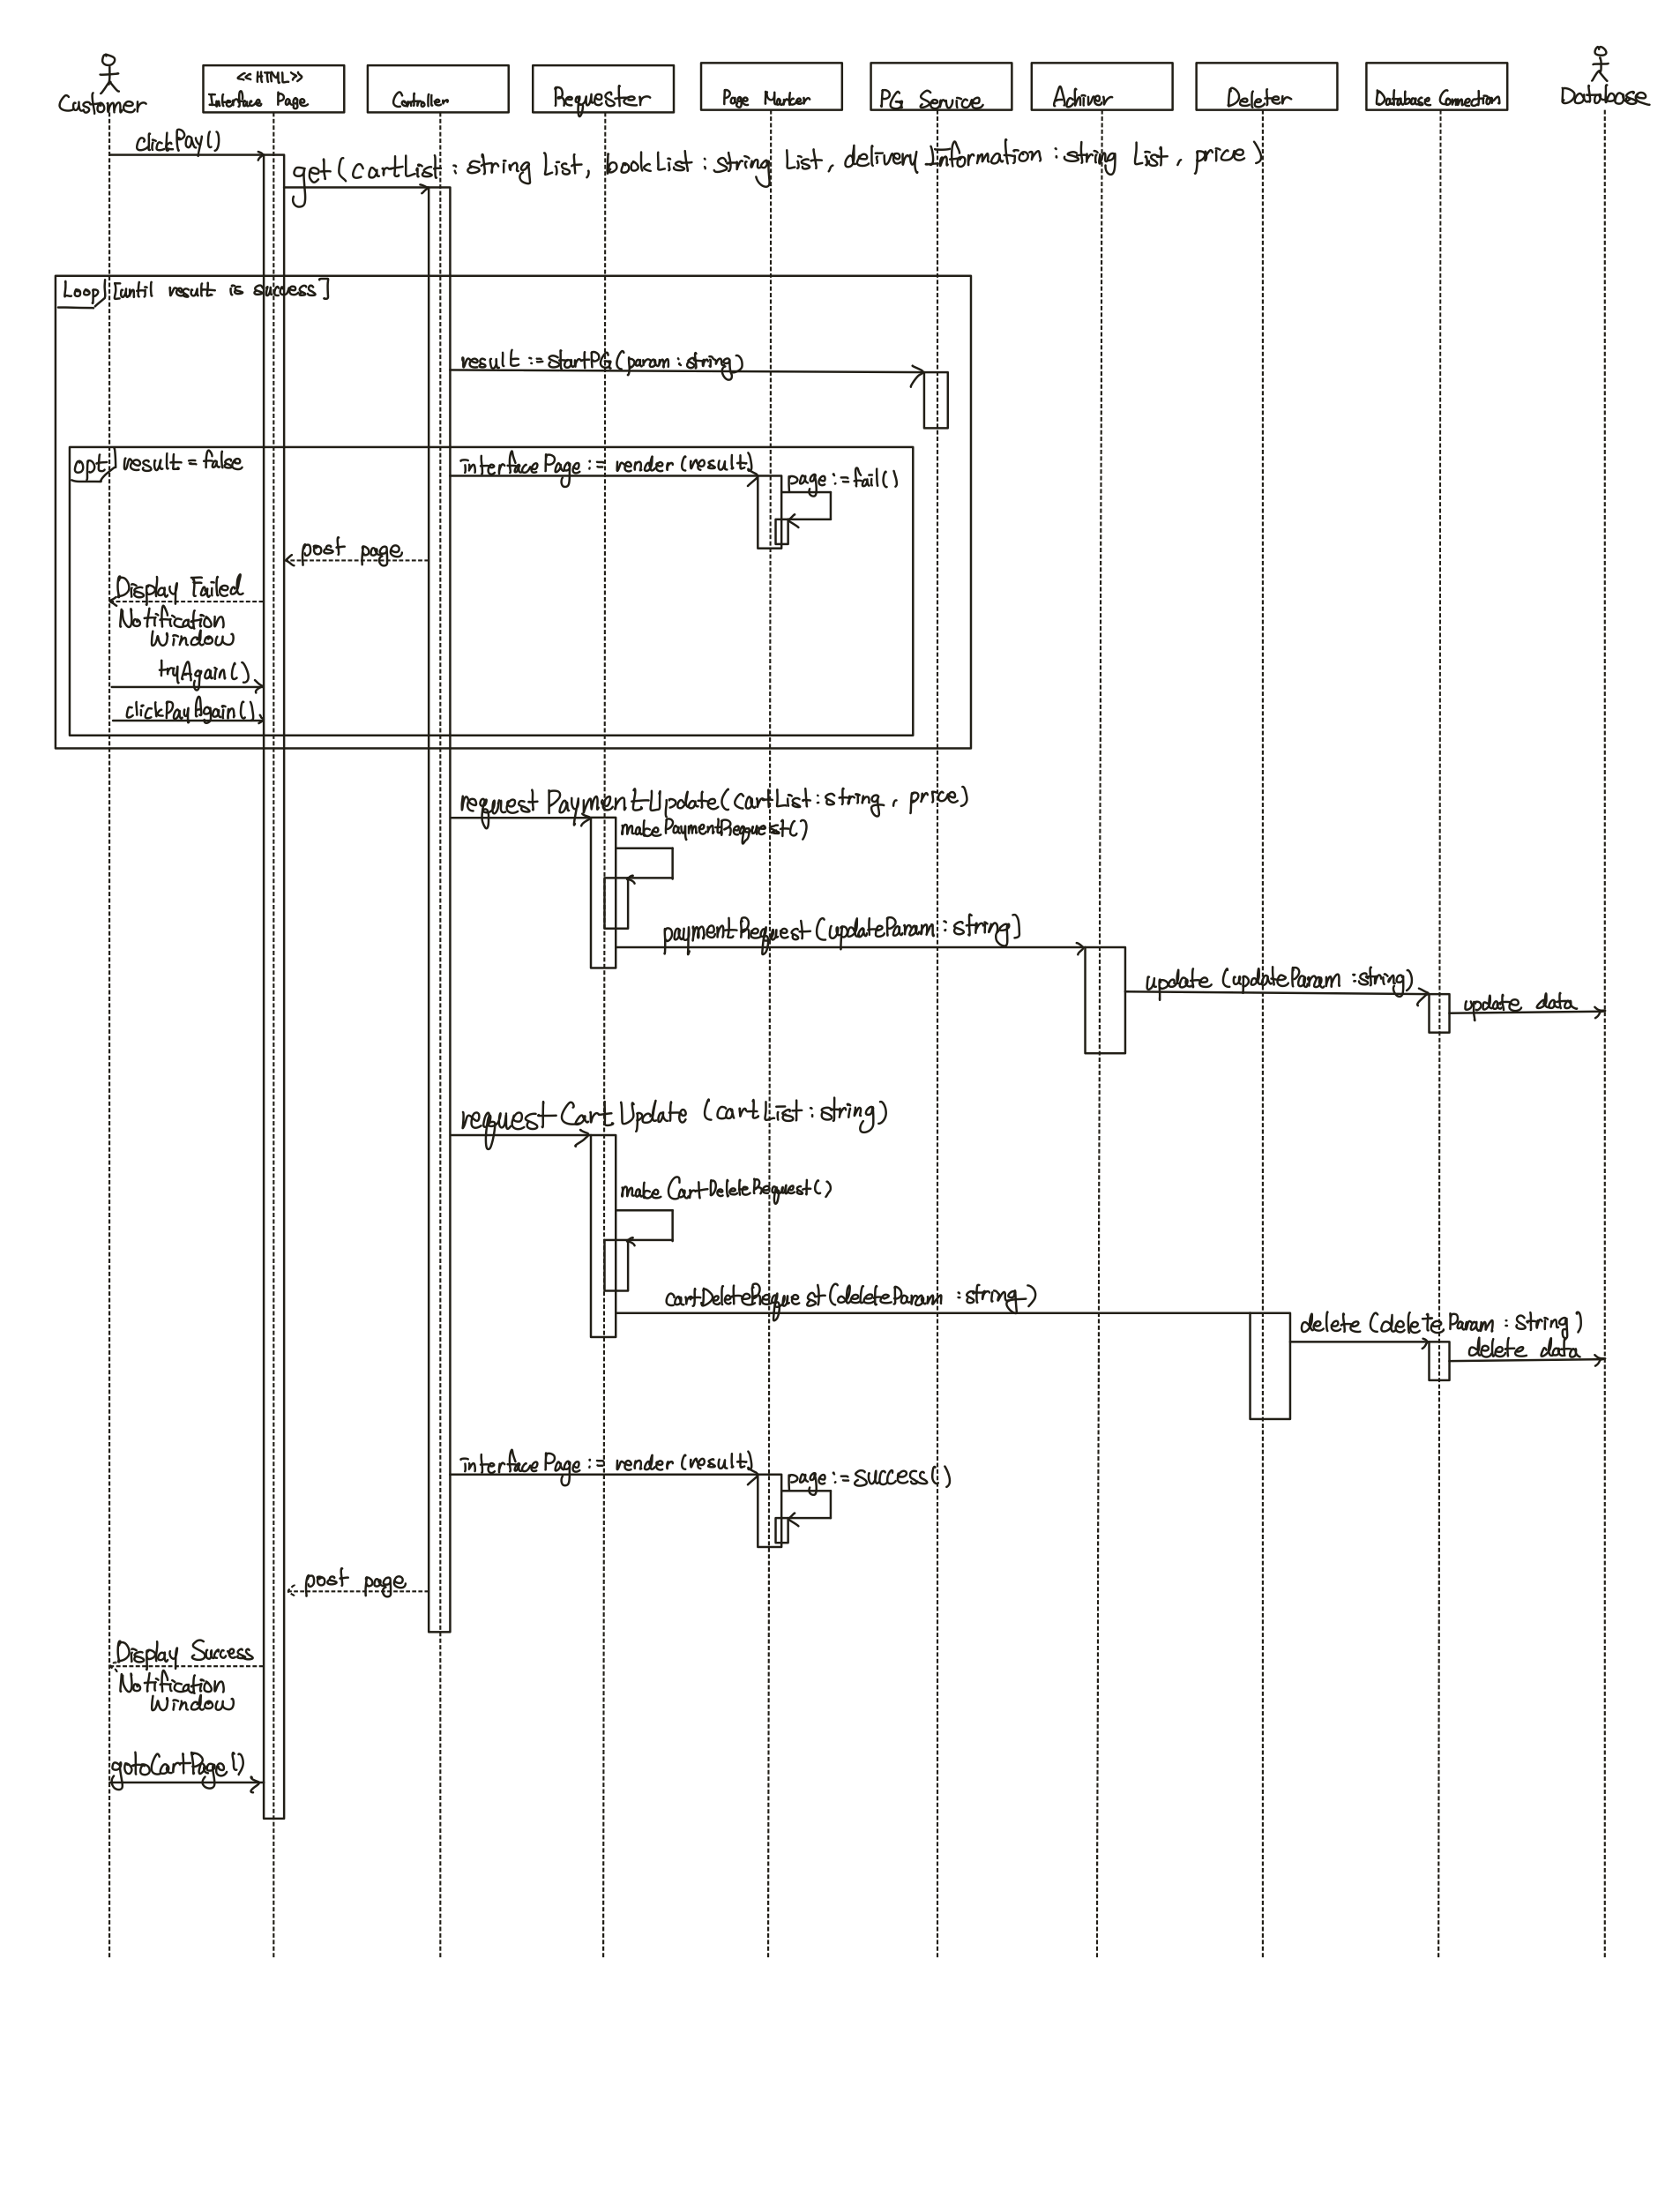 Customer
<< HTML >>
Interface Page
Controller
Requester
Page Marker
PG Service
Achiver
Deleter
Database Connection
Database
clickPay()
get( CartList : string List, bookList : string List, delivery_Information : string List, price )
Loop [until result is success]
result := startPG(param : string)
opt result = false
interface Page := render (result)
page := fail()
post page
Display Failed
Notification
Window
tryAgain()
clickPayAgain()
request PaymentUpdate(CartList : string, price)
makePaymentRequest()
paymentRequest(updateParam : string)
update (updateParam : string)
update data
requestCartUpdate (cartList : string)
make CartDeleteRequest()
cartDeleteRequest(deleteParam : string)
delete (deleteParam : string)
delete data
interface Page := render (result)
page := success()
post page
Display Success
Notification
Window
gotoCartPage()